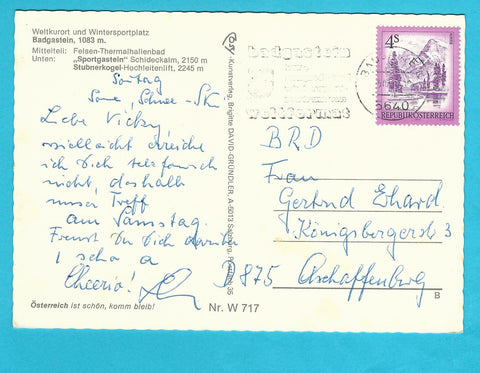 Weltkurort und Wintersportplatz
Badgastein, 1083 m.
Mittelteil: Felsen-Thermalhallenbad
Unten: „Sportgastein" Schideckalm, 2150 m
Stubnerkogel-Hochleitenlift, 2245 m
Sonne, Schnee - Ski
Liebe Vicky,
vielleicht erreiche
ich Dich telefonisch
nicht, deshalb
unser Treff
am Samstag.
Freust Du Dich darüber
I scho a
Cheerio!
Österreich ist schön, komm bleib!
Kunstverlag, Brigitte DAVID-GRÜNDLER, A-5013 Salzburg, Postfach 35
Nr. W 717
badgastein
weltbekannt
5640
4S
REPUBLIK ÖSTERREICH
BRD
Frau
Gertrud Ehard
Königsbergerstr 3
D 875 Aschaffenburg
B